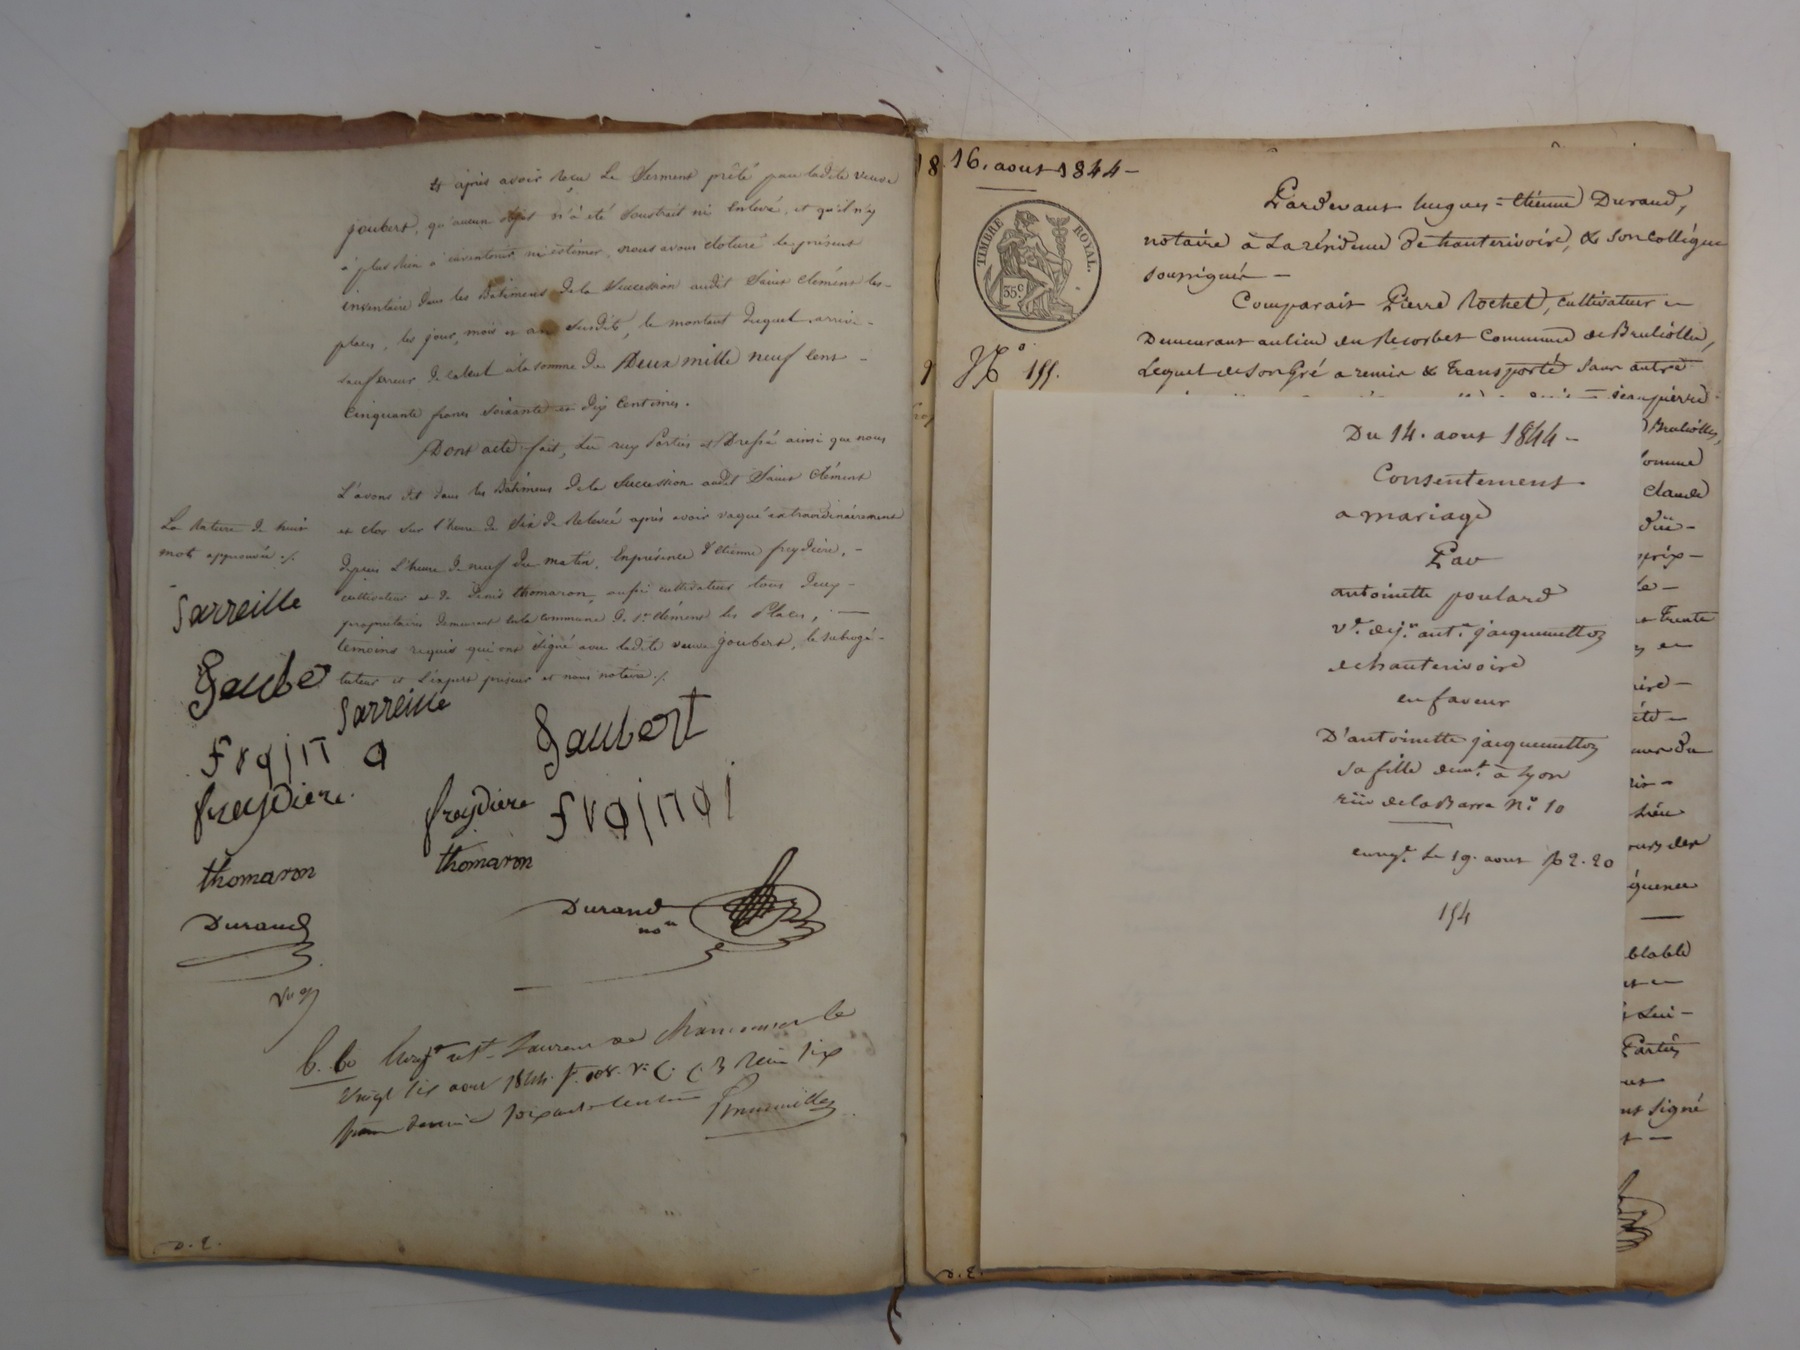 et après avoir reçu le serment prêté par ladite veuve
joubert, qu'aucun objet n'a été soustrait ni enlevé, et qu'il n'y
a plus rien à inventorier ni estimer, nous avons cloturé le présent
inventaire dans les Batimens de la Succession audit Saint Clément les-
places, les jour, mois et an susdits, le montant duquel arrive-
sauf erreur de calcul à la somme de Deux mille neuf cent -
cinquante francs soixante et dix centimes.
Dont acte fait, lu aux Parties et Dressé ainsi que nous
L'avons dit dans les Bâtimens de la Succession audit Saint Clément
et clos sur l'heure de Six de Relevée après avoir vaqué extraordinairement
depuis L'heure de neuf du matin. En présence d'Etienne freydière, -
cultivateur et de Denis thomaron, aussi cultivateur tous deux -
propriétaires demeurant en la commune de St. Clément les Places, -
temoins requis qui ont signé avec ladite veuve joubert, le subrogé-
tuteur et L'expert priseur et nous notaire ./.
La Rature de huit
mot approuvée ./.
Sarreille
Gaube
Sarreille
Gaubert
freydiere.
freydiere
thomaron
thomaron
Durand
Durand
no.re
vingt six aout 1844. f.
D. E.
18
16. aout 1844 -
TIMBRE ROYAL.
35 c
No 155.
Pardevant hugues-Etienne Durand,
notaire à La résidence de hauterivoire, & son collègue
soussignés -
Comparait Pierre Rochet, cultivateur -
Demeurant au lieu du Recorbet Commune de Brulliolles,
Lequel de son Gré a remis & transporté sans autre
jean pierre
Brulliolles,
somme
claude
Du 14. aout 1844 -
Consentement
a mariage
Par
antoinette poulard
Ve. de jn. ant.e jacquemettoz
de hauterivoire
en faveur
D'antoinette jacquemettoz
sa fille demt. à Lyon
rüe de la Barre No. 10
enregt. Le 19. aout f 2. 20
154
Trente
Lieu
ours des
blable
Lui -
Partie
ont signé
D. E.